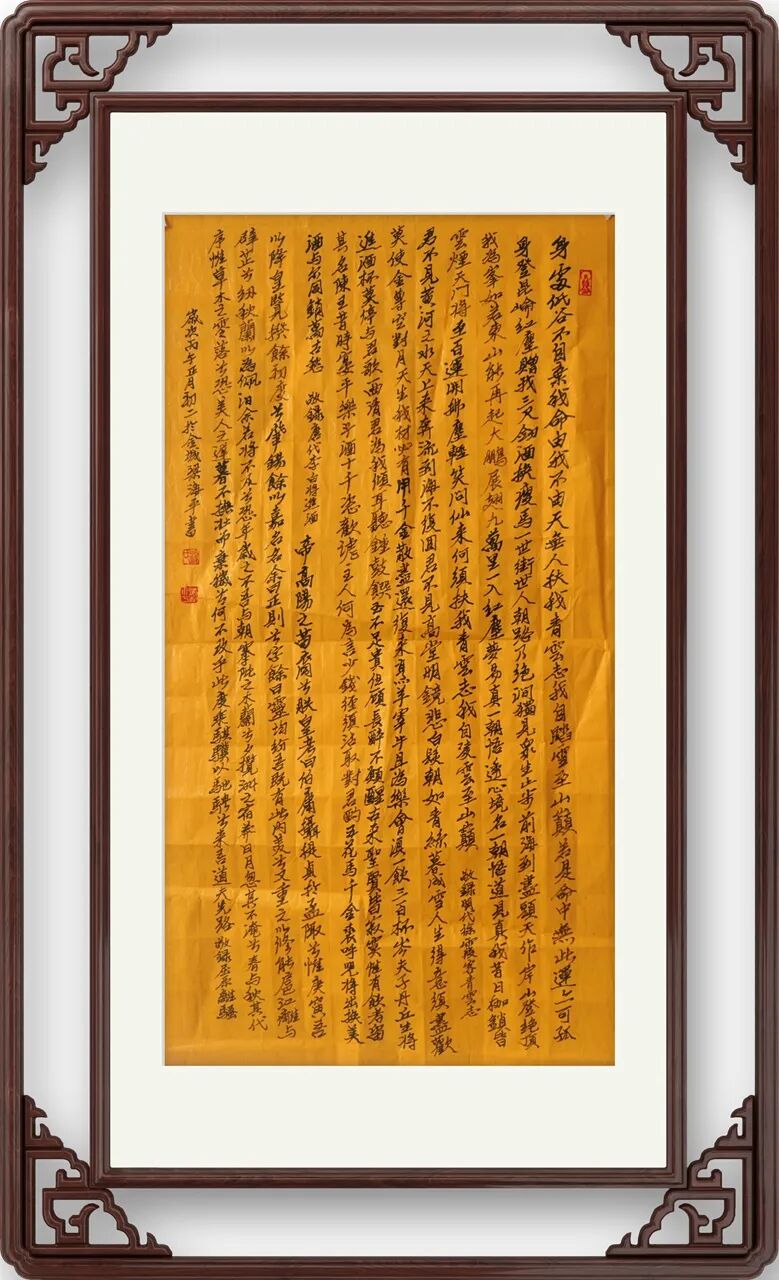 身處低谷不自棄我命由我不由天無人扶我青雲志我自踏雪至山巔若是命中無此運亦可孤
身登昆崙紅塵贈我三尺劍酒換瘦馬一世街世人朝路乃絕洞貓見眾生步前海到盡頭天作岸山登絕頂
我為峯如若東山能再起大鵬展翅九萬里一入紅塵夢易真一朝悟透心境名一朝悟道見真我昔日枷鎖皆
雲煙天門將至百運開拂塵輕笑問仙來何須扶我青雲志我自凌雲至山巔 敬錄明代徐霞客青雲志
君不見黃河之水天上來奔流到海不復回君不見高堂明鏡悲白髮朝如青絲暮成雪人生得意須盡歡
莫使金尊空對月天生我材必有用千金散盡還復來烹羊宰牛且為樂會須一飲三百杯岑夫子丹丘生將
進酒杯莫停與君歌一曲請君為我傾耳聽鐘鼓饌玉不足貴但願長醉不願醒古來聖賢皆寂寞惟有飲者留
其名陳王昔時宴平樂斗酒十千恣歡謔主人何為言少錢徑須沽取對君酌五花馬千金裘呼兒將出換美
酒與爾同銷萬古愁 敬錄唐代李白將進酒 帝高陽之苗裔兮朕皇考曰伯庸攝提貞於孟陬兮惟庚寅吾
以降皇覽揆餘初度兮肇錫餘以嘉名名余曰正則兮字餘曰靈均紛吾既有此內美兮又重之以修能扈江離與
辟芷兮紉秋蘭以為佩汩余若將不及兮恐年歲之不吾與朝搴阰之木蘭兮夕攬洲之宿莽日月忽其不淹兮春與秋其代
序惟草木之零落兮恐美人之遲暮不撫壯而棄穢兮何不改乎此度乘騏驥以馳騁兮來吾道夫先路 敬錄屈原離騷
歲次丙午正月初二於金城梁海平書